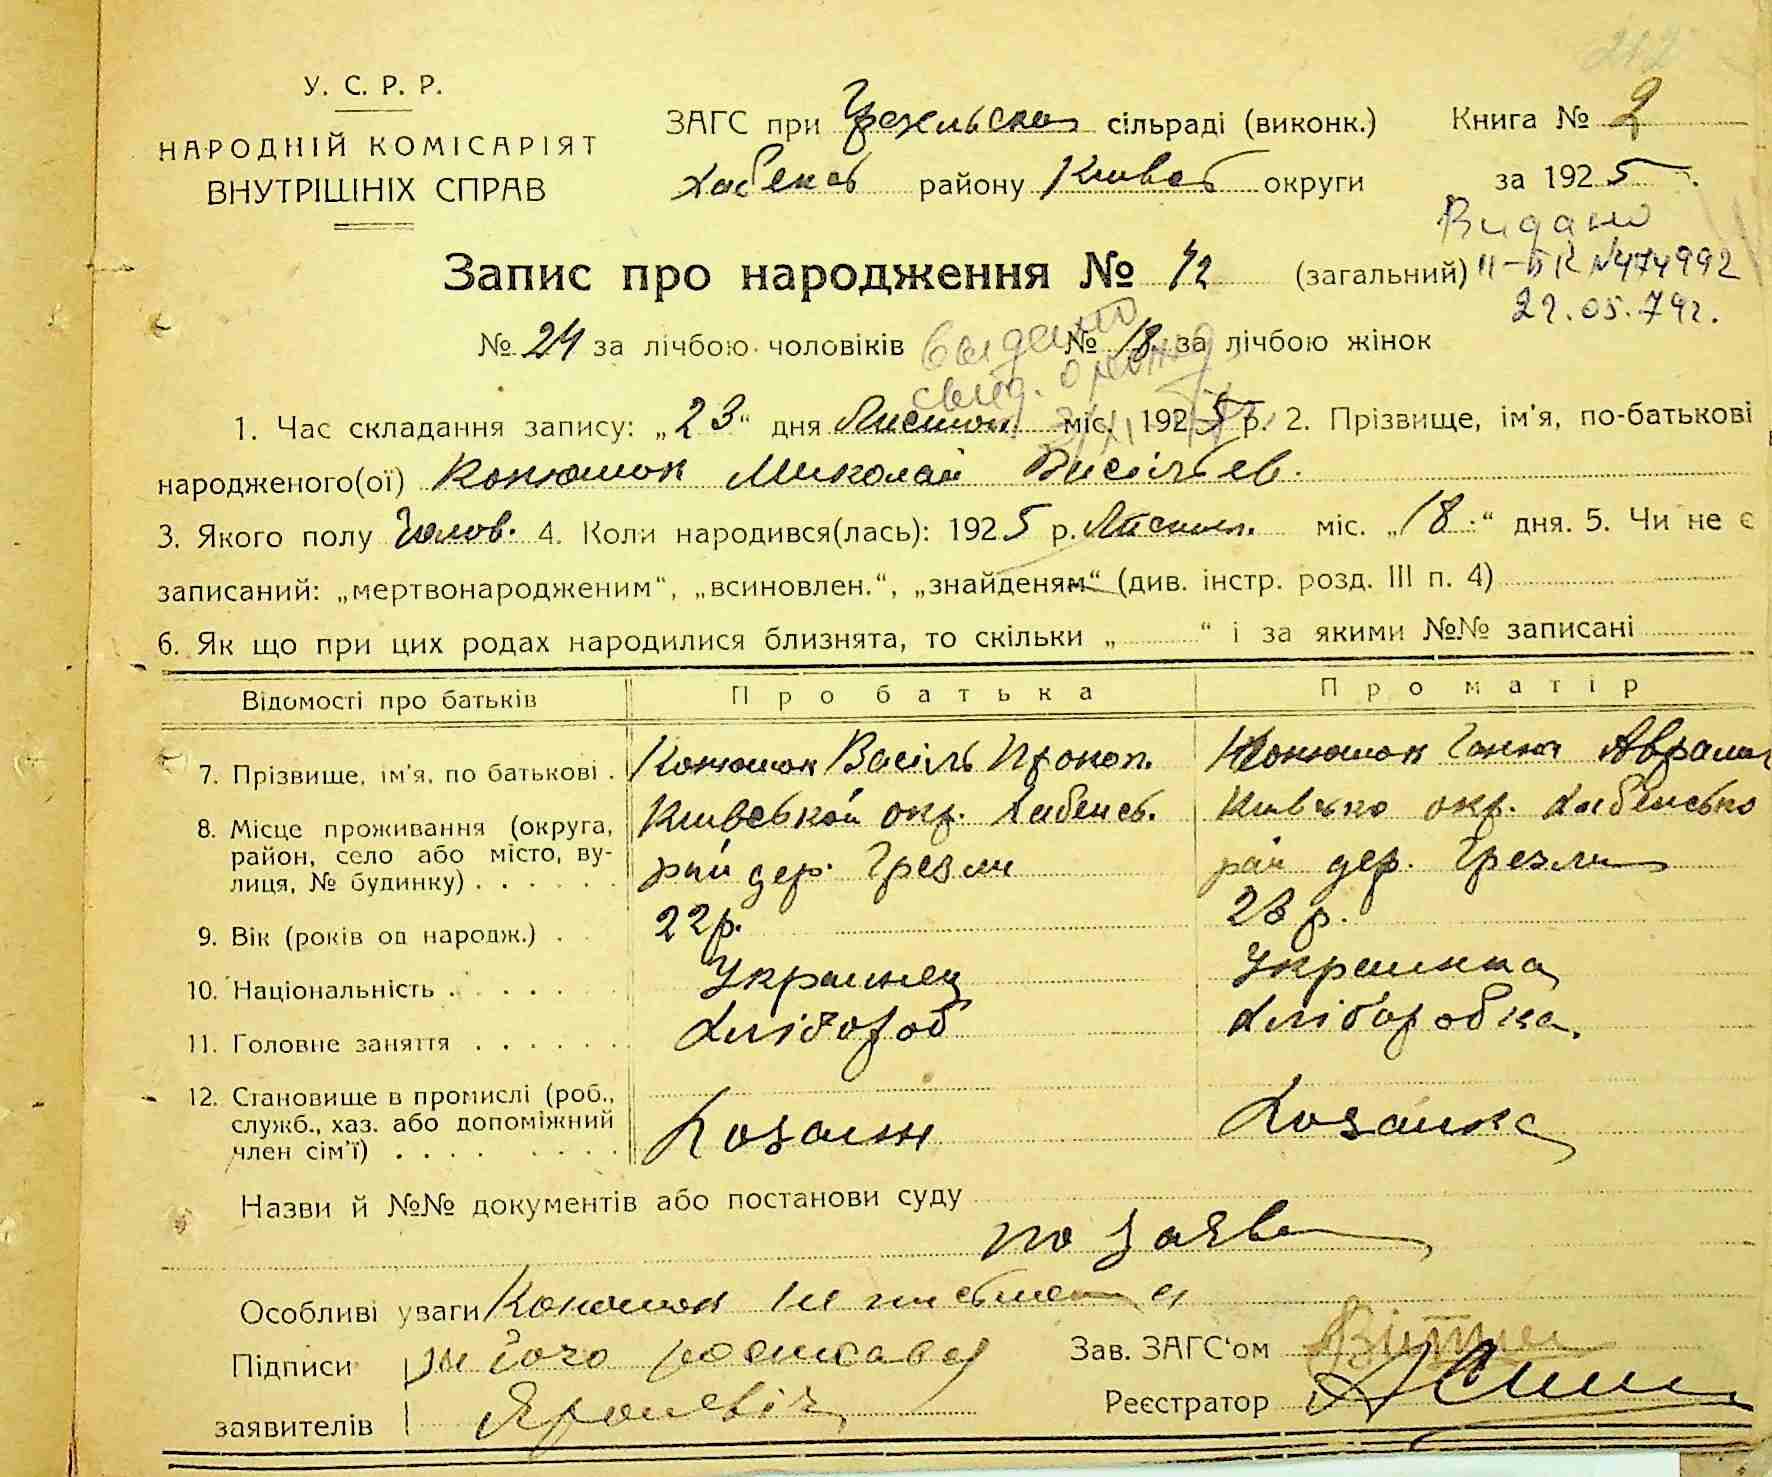 212
У. С. Р. Р.
НАРОДНІЙ КОМІСАРІЯТ
ВНУТРІШНІХ СПРАВ
ЗАГС при Грезльском сільраді (виконк.)
Хабенсь району Київсь округи
Книга № 2
за 1925
Видано
II-БК №474992
22.05.79г.
Запис про народження № 42 (загальний)
№ 24 за лічбою чоловіків № 18 за лічбою жінок
1. Час складання запису: „23“ дня Листоп. міс. 1925 р. 2. Прізвище, ім'я, по-батькові
народженого(ої) Конюшок Миколай Висільев.
3. Якого полу Чолов. 4. Коли народився(лась): 1925 р. Листоп. міс. „18“ дня. 5. Чи не є
записаний: „мертвонародженим“, „всиновлен.“, „знайденям“ (див. інстр. розд. III п. 4)
6. Як що при цих родах народилися близнята, то скільки „ “ і за якими №№ записані
Відомості про батьків Про батька Про матір
7. Прізвище, ім'я, по батькові . Конюшок Васіль Прокоп. Конюшок Ганна Аврам
8. Місце проживання (округа, Київській окр. Хабенсь. Київсько окр. Хабенсько
район, село або місто, ву- рай дер. Грезли рай дер. Грезли
лиця, № будинку) . . . . . .
9. Вік (років од народж.) . . 22р. 23 р.
10. Національність . . . . . Украинец Украинка
11. Головне заняття . . . . . . . Хлібороб Хліборобка.
12. Становище в промислі (роб.,
служб., хаз. або допоміжний Хозаин Хозаика
член сім'ї) . . . . . . . . .
Назви й №№ документів або постанови суду
по заяве
Особливі уваги Конюшок не письмен
Підписи за його росписався Зав. ЗАГС'ом
заявителів Реєстратор